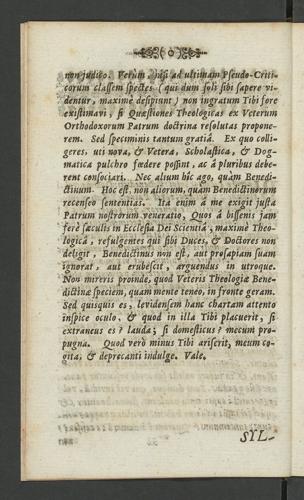 non judico. Verùm nisi ad ultimam Pseudo-Criti-
corum classem spectes (qui dum soli sibi sapere vi-
dentur, maximè desipiunt) non ingratum Tibi fore
existimavi, si Quæstiones Theologicas ex Veterum
Orthodoxorum Patrum doctrina resolutas propone-
rem. Sed speciminis tantum gratiâ. Ex quo colli-
geres, uti nova, & Vetera, Scholastica, & Dog-
matica pulchro fœdere possint, ac à pluribus debe-
rent consociari. Nec alium hîc ago, quàm Benedi-
ctinum. Hoc est, non aliorum, quàm Benedictinorum
recenseo sententias. Ita enim á me exigit justa
Patrum nostrorum veneratio, Quos á bissenis jam
ferè sæculis in Ecclesia Dei Scientiâ, maximè Theo-
logicâ, refulgentes qui sibi Duces, & Doctores non
deligit, Benedictinus non est, aut prosapiam suam
ignorat, aut erubescit, arguendus in utroque.
Non mireris proinde, quod Veteris Theologiæ Bene-
dictinæ speciem, quam mente teneo, in fronte geram.
Sed quisquis es, levidensem hanc chartam attento
inspice oculo, & quod in illa Tibi placuerit, si
extraneus es? lauda; si domesticus? mecum pro-
pugna. Quod verò minus Tibi arriserit, meum co-
gita, & deprecanti indulge. Vale.
SYL-